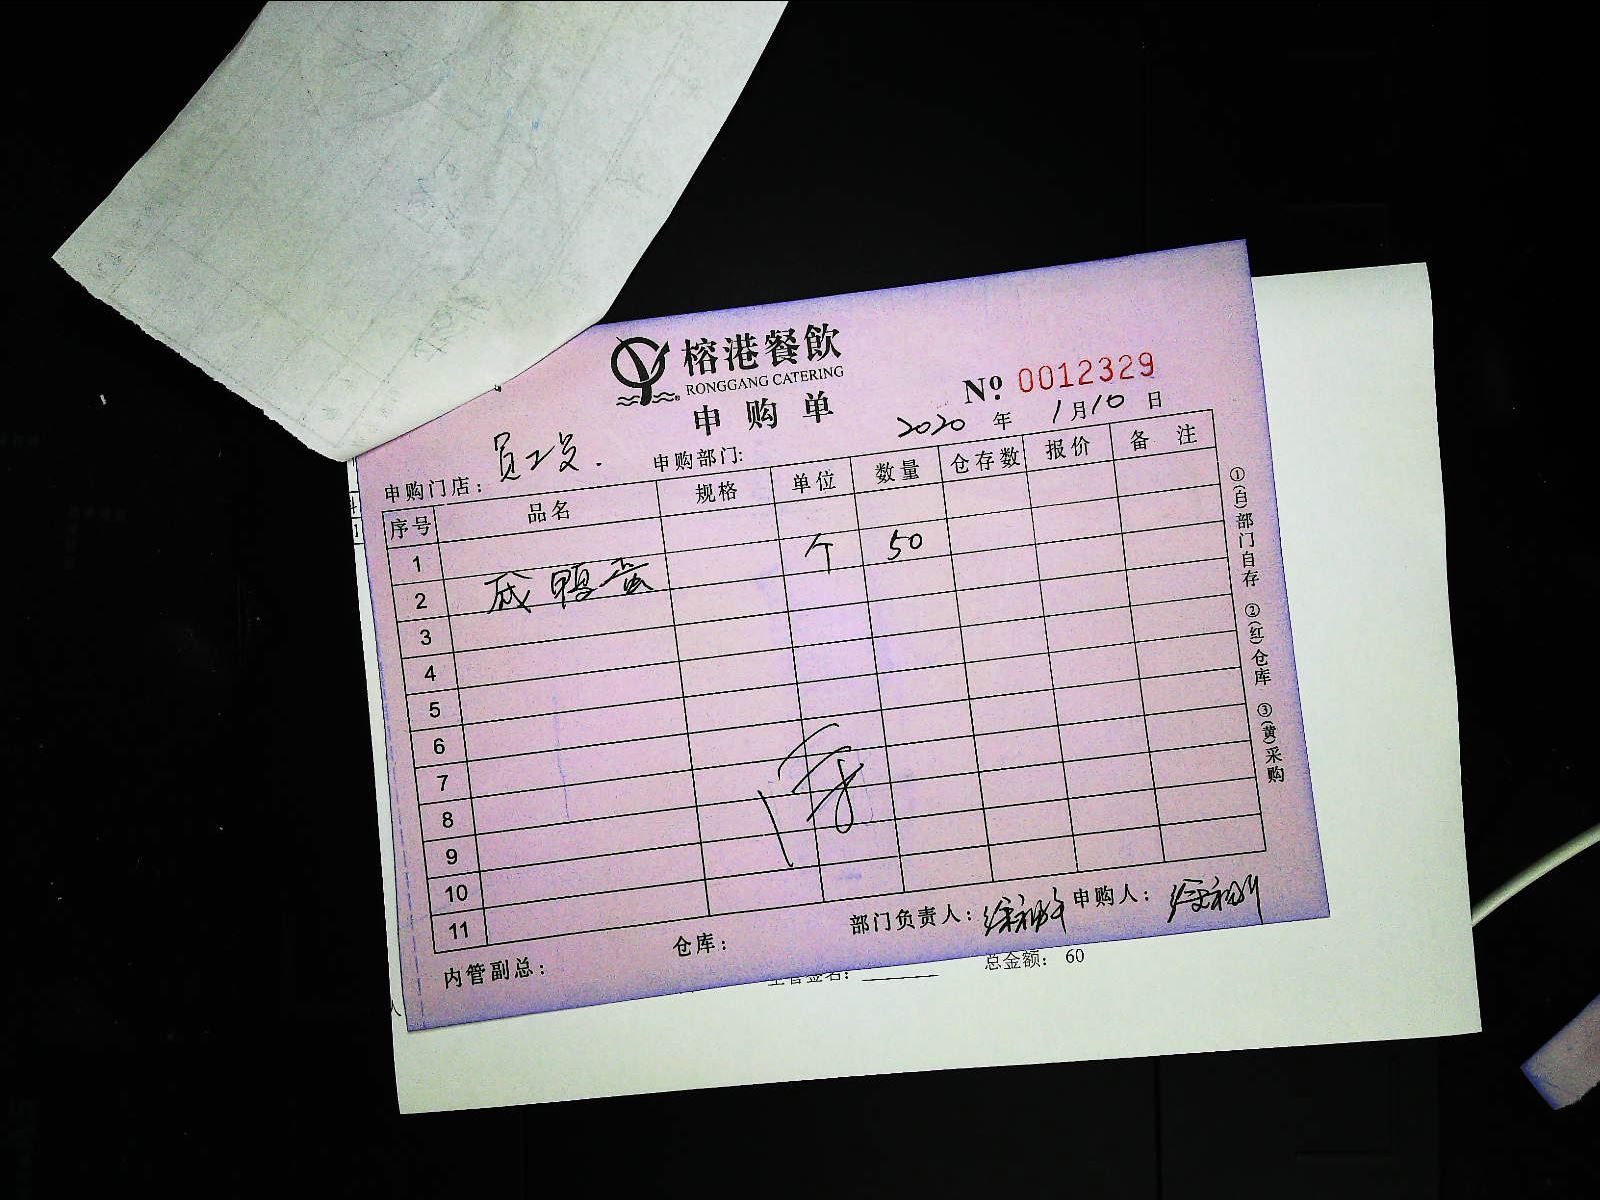 榕港餐飲
RONGGANG CATERING
申购单
№ 0012329
2020 年 1 月 10 日
申购门店： 员工 申购部门:
序号 品名 规格 单位 数量 仓存数 报价 备 注
1
2 咸鸭蛋 个 50
3
4
5
6
7
8
9
10
11
内管副总： 仓库： 部门负责人： 申购人：
①(白)部门自存 ②(红)仓库 ③(黄)采购
主管签名: 总金额: 60